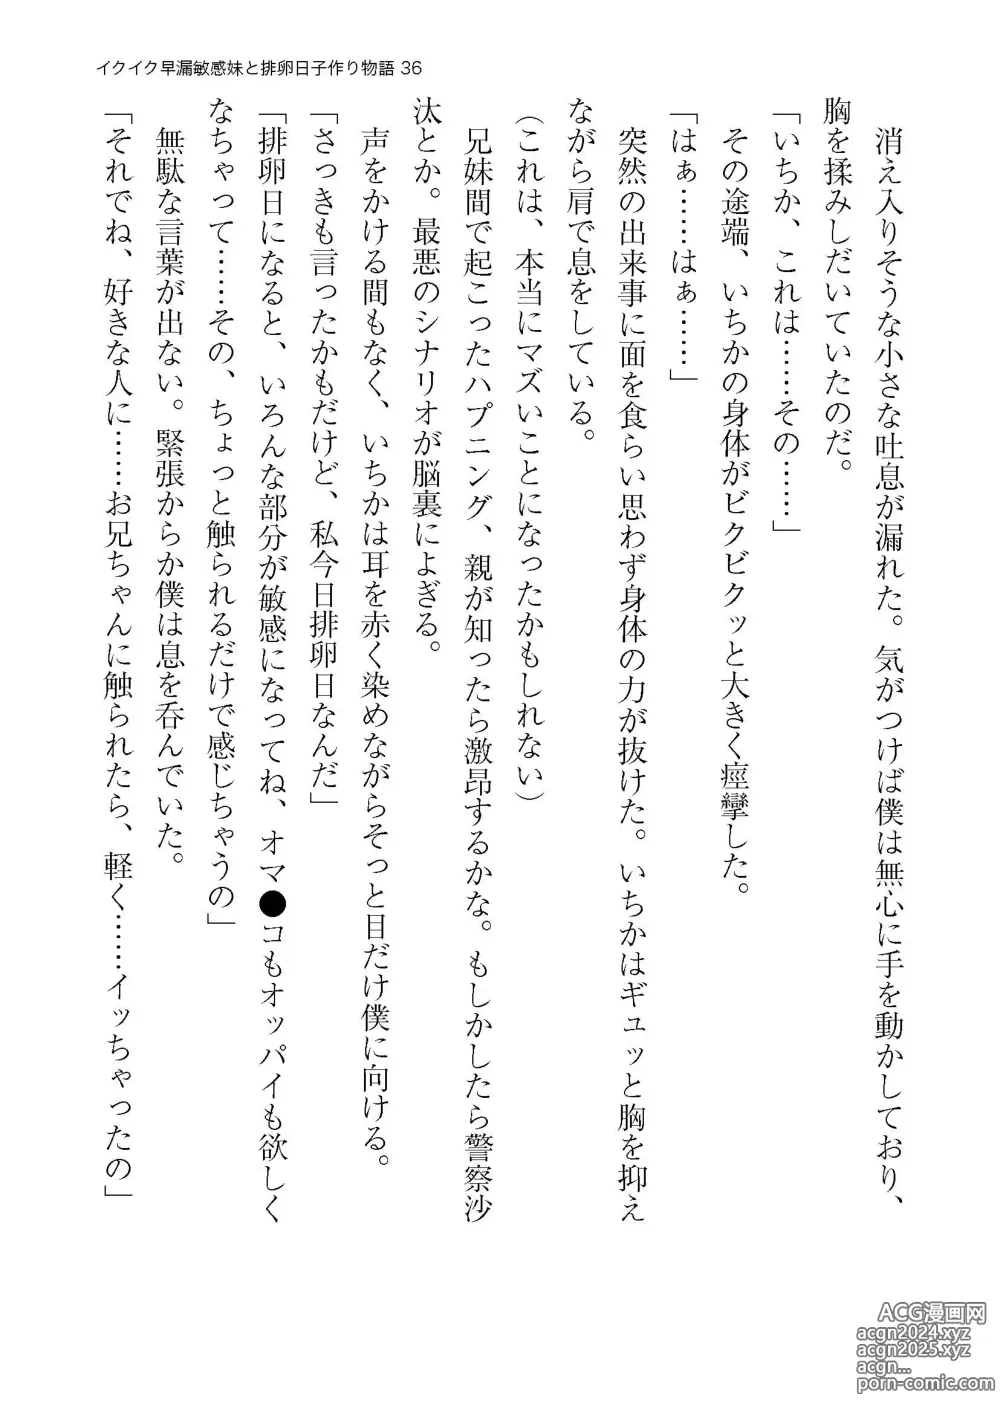 イクイク早漏敏感妹と排卵日子作り物語 36
　消え入りそうな小さな吐息が漏れた。気がつけば僕は無心に手を動かしており、
胸を揉みしだいていたのだ。
「いちか、これは……その……」
　その途端、いちかの身体がビクビクッと大きく痙攣した。
「はぁ……はぁ……」
　突然の出来事に面を食らい思わず身体の力が抜けた。いちかはギュッと胸を抑え
ながら肩で息をしている。
（これは、本当にマズいことになったかもしれない）
　兄妹間で起こったハプニング、親が知ったら激昂するかな。もしかしたら警察沙
汰とか。最悪のシナリオが脳裏によぎる。
　声をかける間もなく、いちかは耳を赤く染めながらそっと目だけ僕に向ける。
「さっきも言ったかもだけど、私今日排卵日なんだ」
「排卵日になると、いろんな部分が敏感になってね、オマ●コもオッパイも欲しく
なちゃって……その、ちょっと触られるだけで感じちゃうの」
　無駄な言葉が出ない。緊張からか僕は息を呑んでいた。
「それでね、好きな人に……お兄ちゃんに触られたら、軽く……イッちゃったの」
ACG漫画网
acgn2024.xyz
acgn2025.xyz
acgn...
porn-comic.com